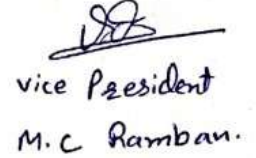 Vice President
M.C Ramban.